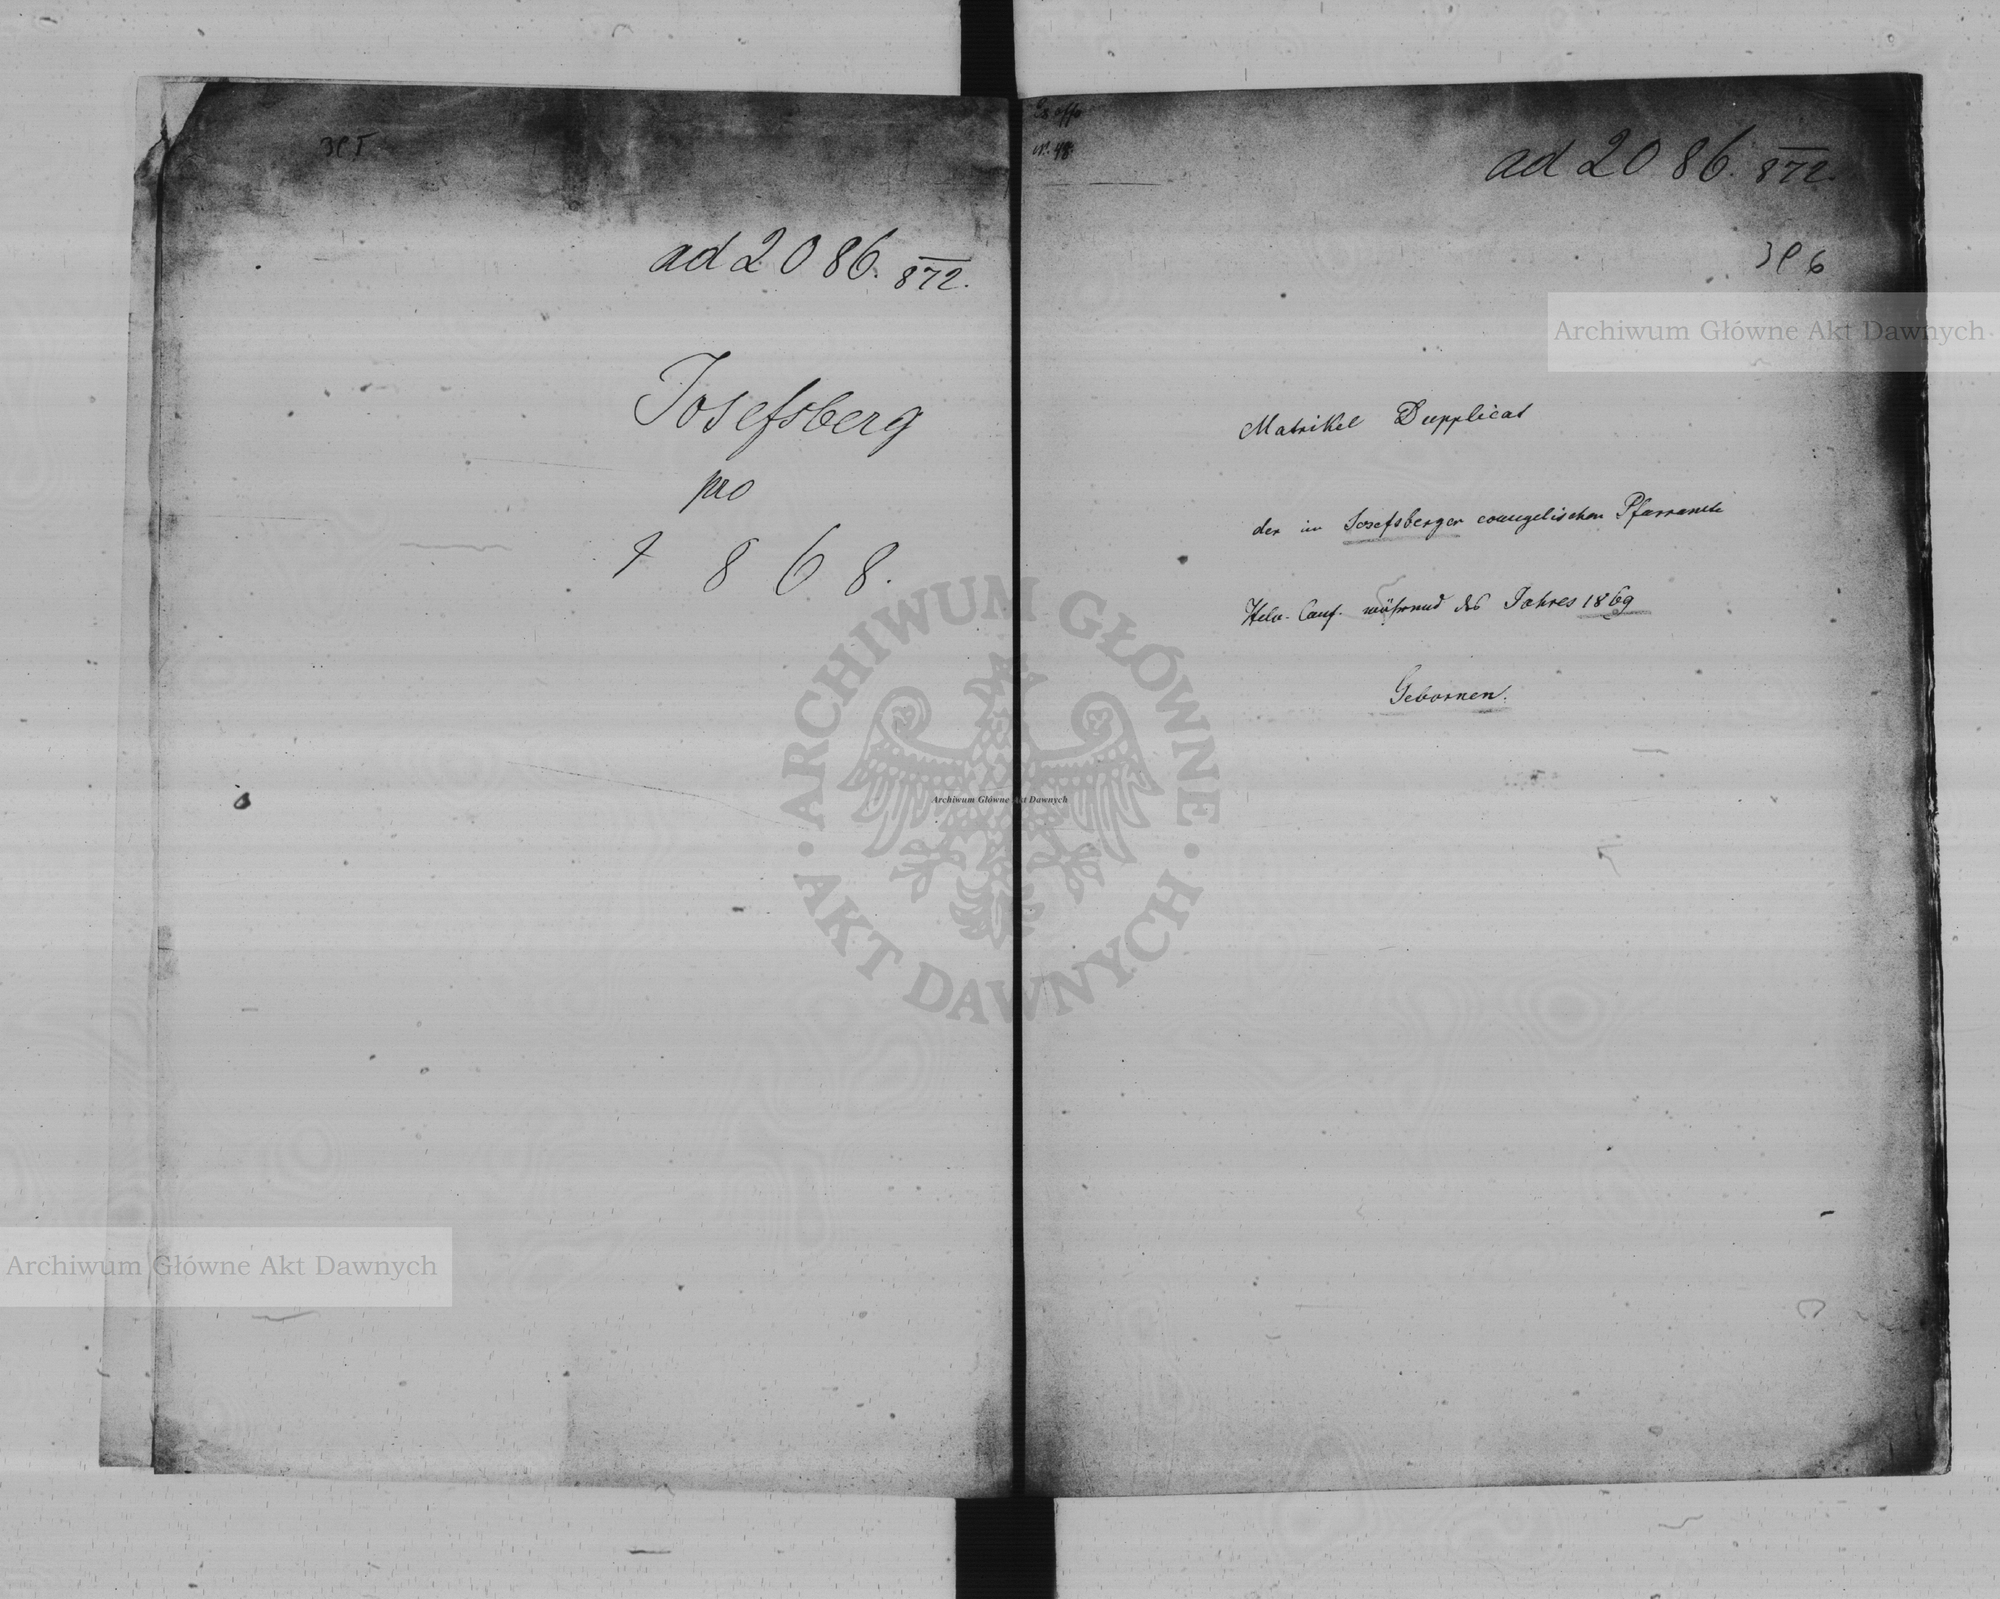 ad 2086. 872.
Josefsberg
pro
1868.
Ex offo
Nr. 48.
ad 2086. 872.
Archiwum Główne Akt Dawnych
Matrikel Dupplicat
der im Josefsberger evangelischen Pfarramte
Helv. Conf. während des Jahres 1869
Gebornen.
ARCHIWUM GŁÓWNE AKT DAWNYCH
Archiwum Główne Akt Dawnych
Archiwum Główne Akt Dawnych